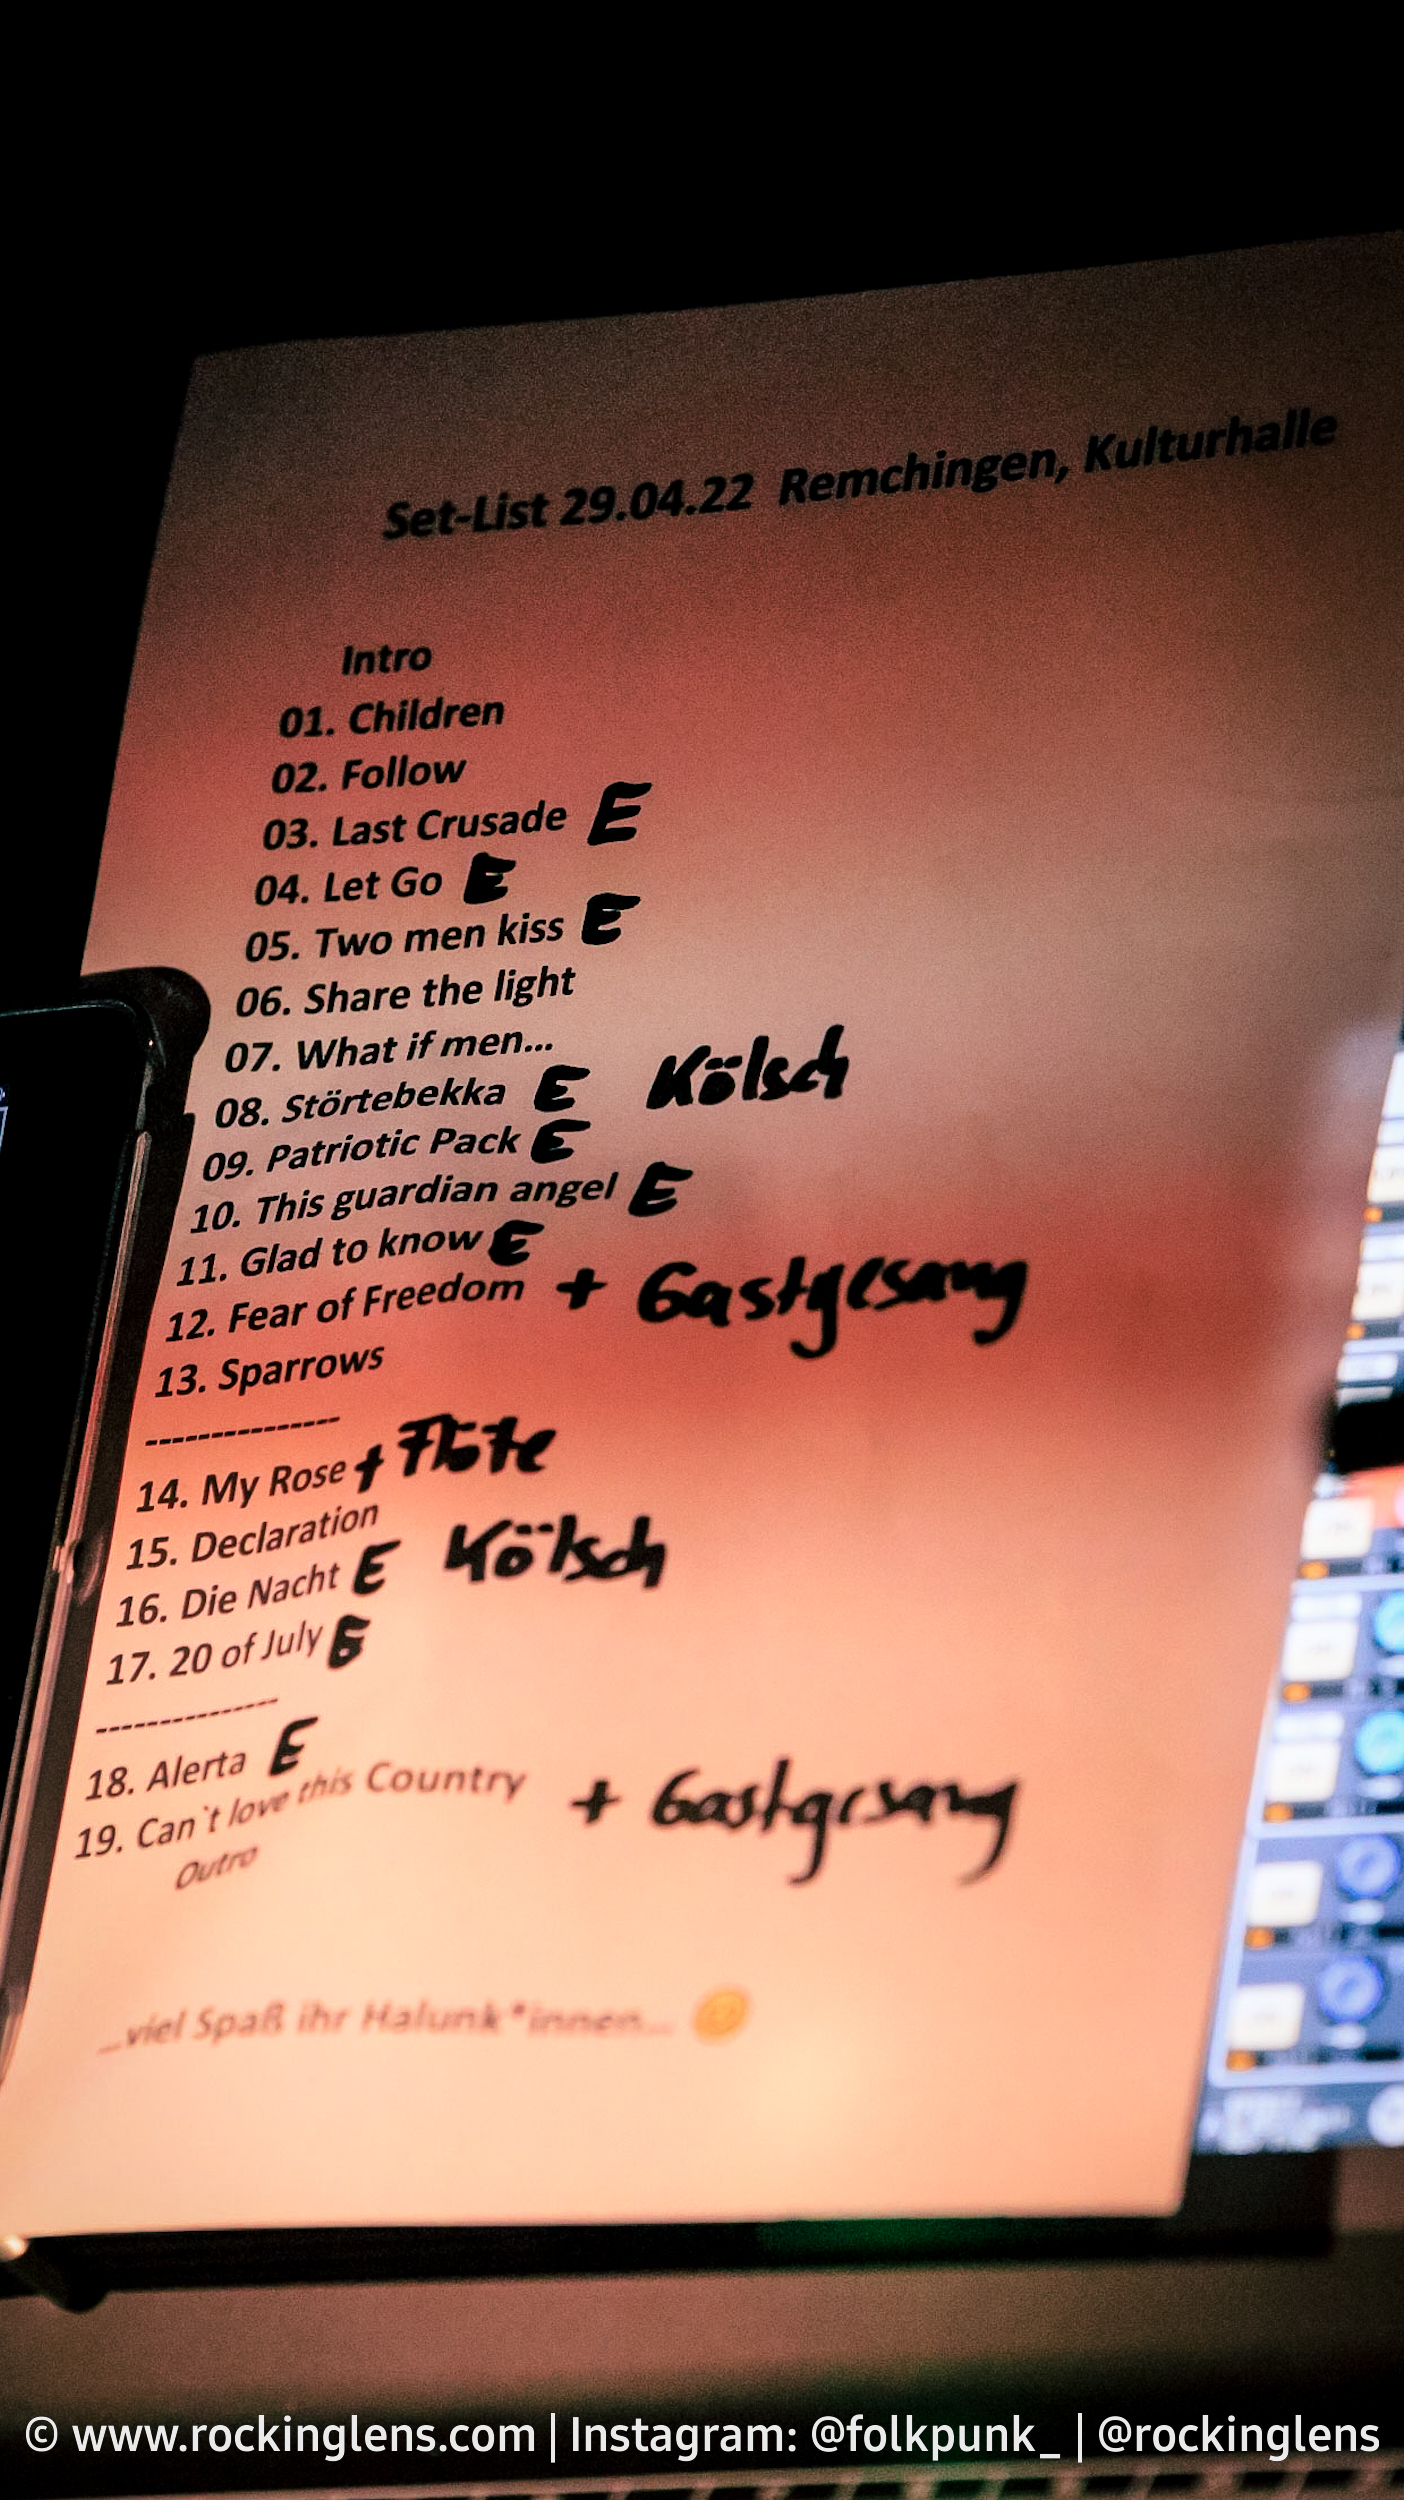 Set-List 29.04.22 Remchingen, Kulturhalle
Intro
01. Children
02. Follow
03. Last Crusade E
04. Let Go E
05. Two men kiss E
06. Share the light
07. What if men...
08. Störtebekka E Kölsch
09. Patriotic Pack E
10. This guardian angel E
11. Glad to know E
12. Fear of Freedom + Gastgesang
13. Sparrows
---------------
14. My Rose + Flöte
15. Declaration
16. Die Nacht E Kölsch
17. 20 of July E
---------------
18. Alerta E
19. Can`t love this Country + Gastgesang
Outro
...viel Spaß ihr Halunk*innen... 😊
© www.rockinglens.com | Instagram: @folkpunk_ | @rockinglens